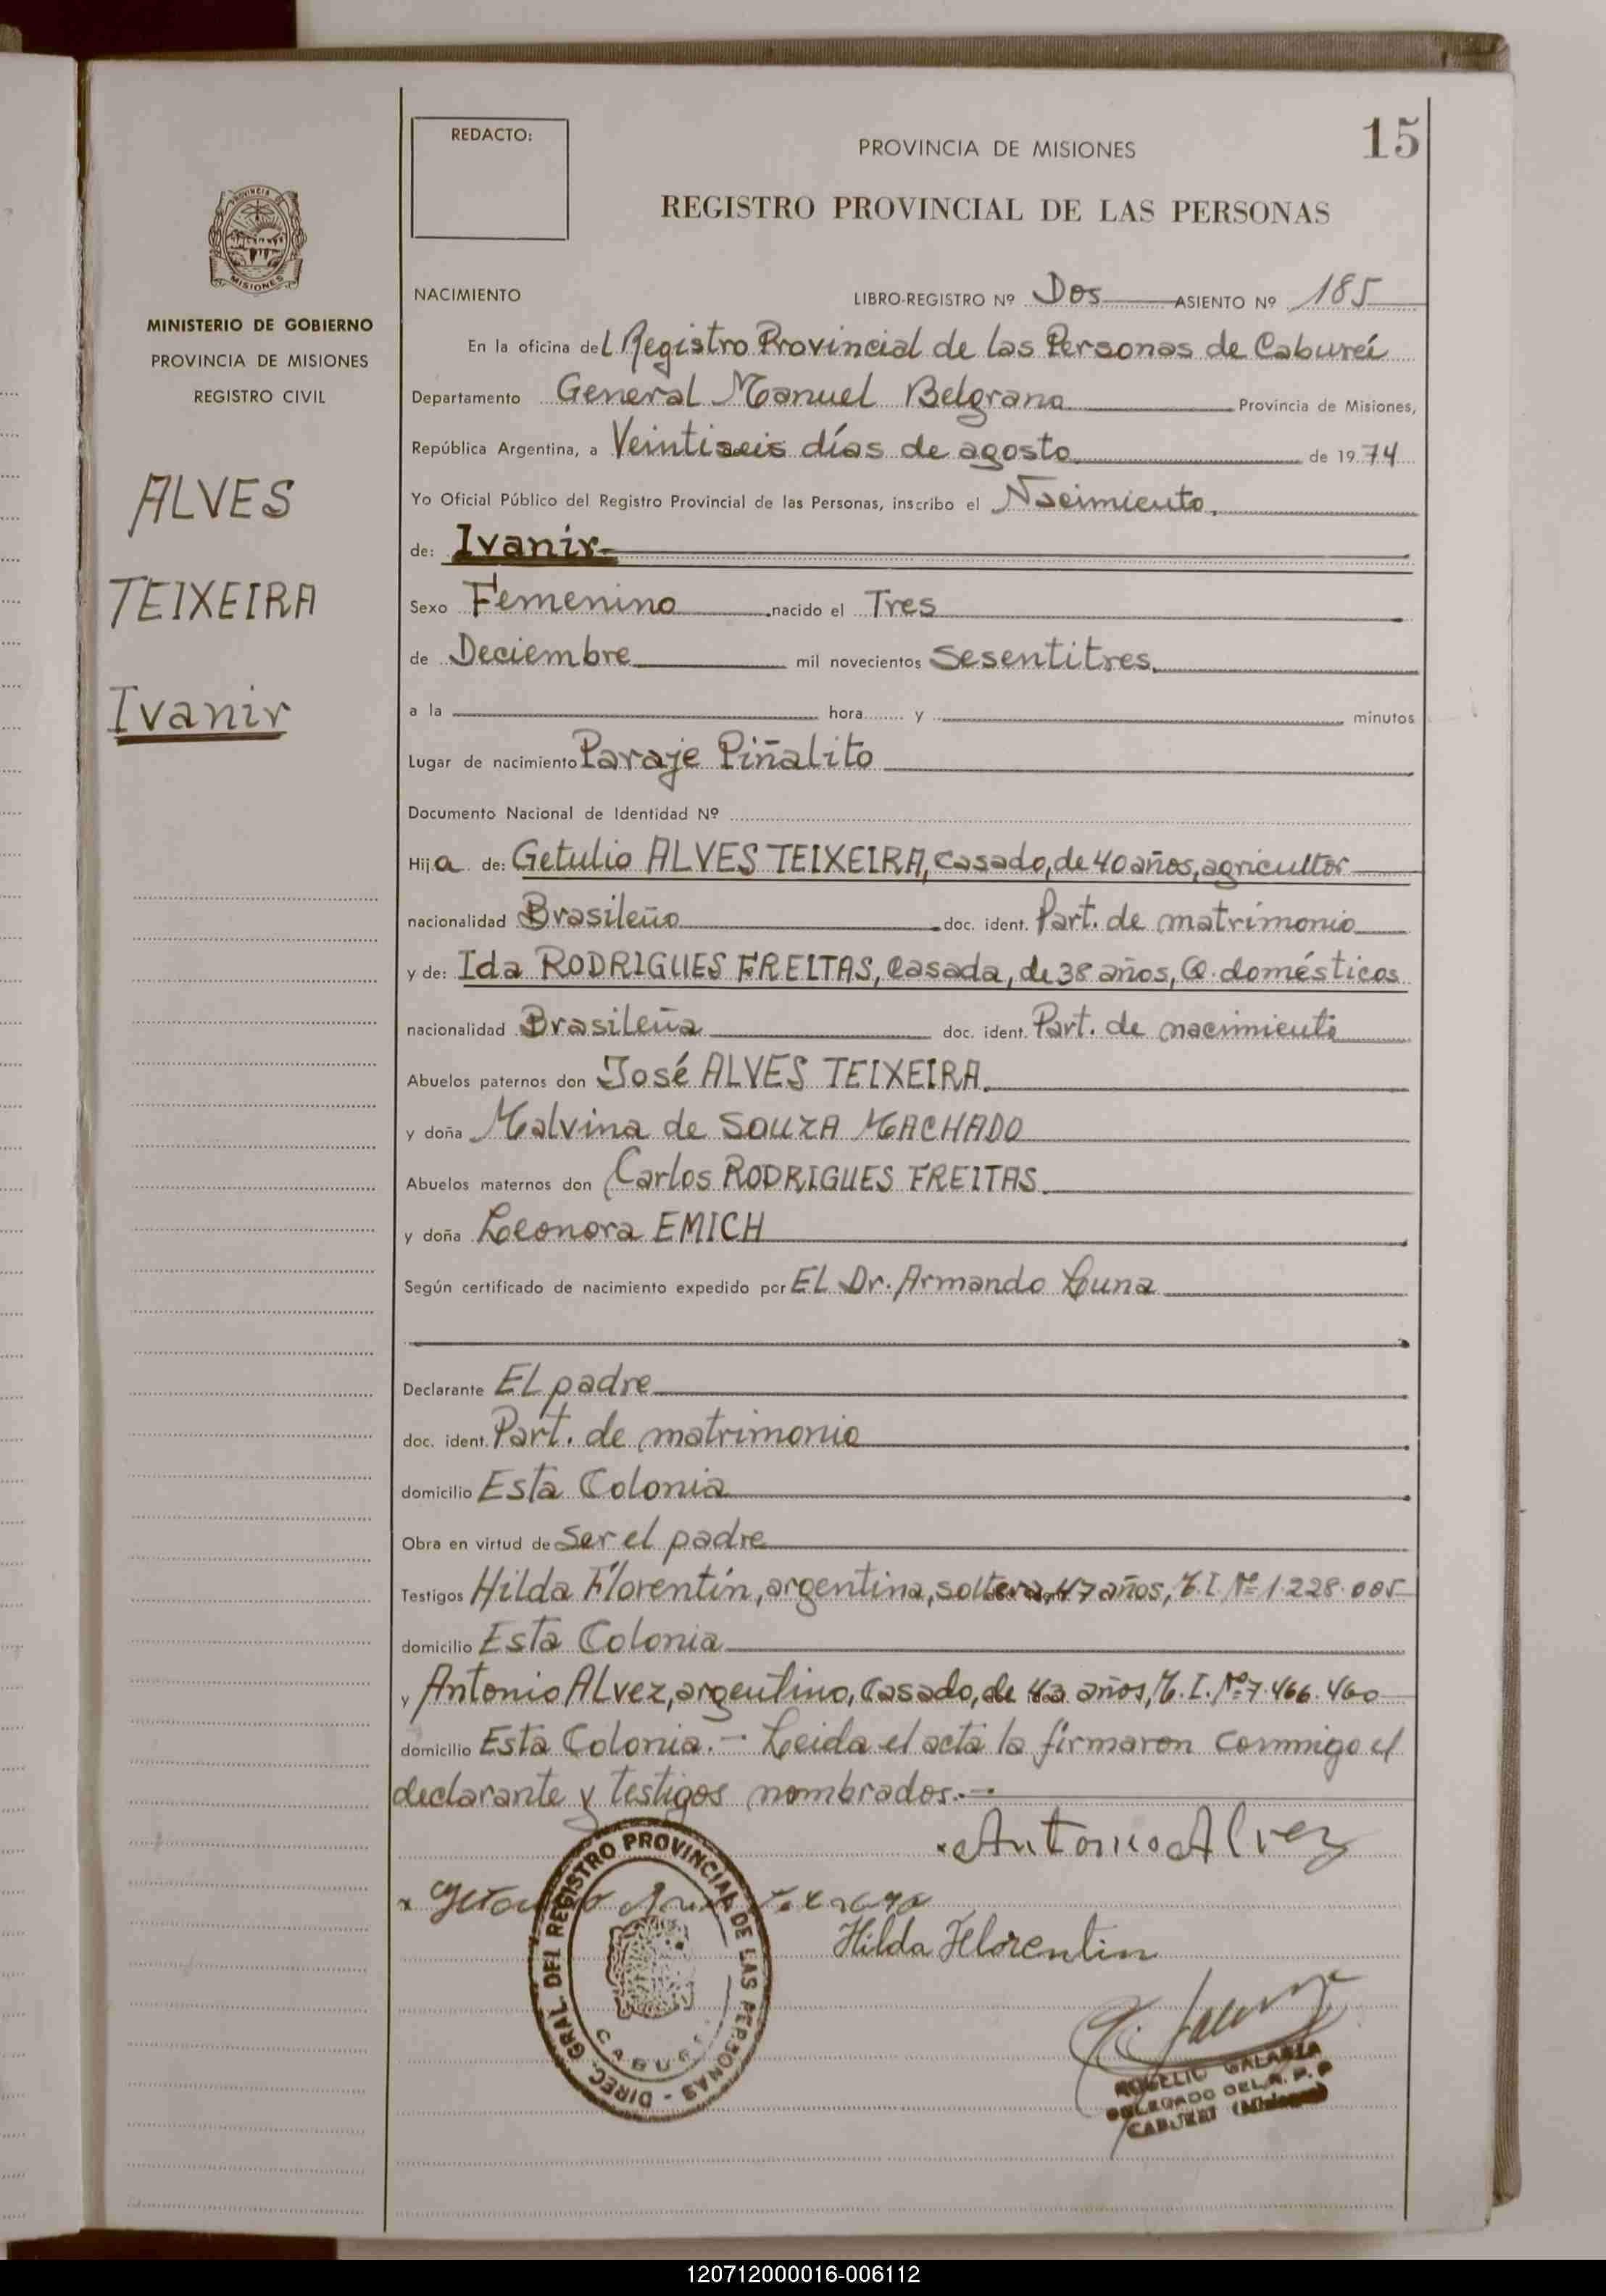 15
REDACTO:
PROVINCIA DE MISIONES
REGISTRO PROVINCIAL DE LAS PERSONAS
PROVINCIA
MISIONES
MINISTERIO DE GOBIERNO
PROVINCIA DE MISIONES
REGISTRO CIVIL
ALVES
TEIXEIRA
Ivanir
NACIMIENTO LIBRO-REGISTRO Nº Dos ASIENTO Nº 185
En la oficina del Registro Provincial de las Personas de Cabureí
Departamento General Manuel Belgrano Provincia de Misiones,
República Argentina, a Veintiseis días de agosto de 1974
Yo Oficial Público del Registro Provincial de las Personas, inscribo el Nacimiento.
de: Ivanir
Sexo Femenino nacido el Tres
de Deciembre mil novecientos Sesentitres.
a la hora y minutos
Lugar de nacimiento Paraje Piñalito
Documento Nacional de Identidad Nº
Hija de: Getulio ALVES TEIXEIRA, casado, de 40 años, agricultor
nacionalidad Brasileño doc. ident. Part. de matrimonio
y de: Ida RODRIGUES FREITAS, casada, de 38 años, Q. domésticos
nacionalidad Brasileña doc. ident. Part. de nacimiento
Abuelos paternos don José ALVES TEIXEIRA.
y doña Malvina de SOUZA MACHADO
Abuelos maternos don Carlos RODRIGUES FREITAS.
y doña Leonora EMICH
Según certificado de nacimiento expedido por EL Dr. Armando Luna
Declarante EL padre
doc. ident. Part. de matrimonio
domicilio Esta Colonia
Obra en virtud de Ser el padre
Testigos Hilda Florentín, argentina, soltera, 47 años, M.I. Nº 1.228.005
domicilio Esta Colonia
y Antonio ALvez, argentino, casado, de 43 años, M.I. Nº 7.466.460
domicilio Esta Colonia.- Leida el acta la firmaron conmigo el
declarante y testigos nombrados.-
Antonio Alvez
Hilda Florentin
DIREC. GRAL. DEL REGISTRO PROVINCIAL DE LAS PERSONAS -
ROGELIO GALARZA
DELEGADO DEL R. P. P
CABUREI (Misiones)
120712000016-006112